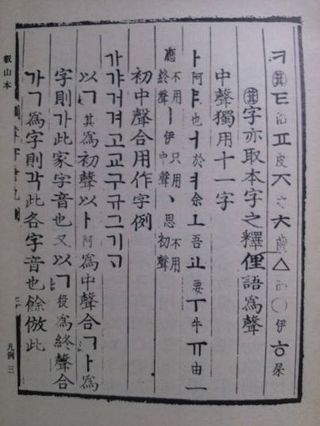 ㅋ箕ㅌ治ㅍ皮ㅈ之ㅊ齒ㅿ而ㅇ伊ㅎ屎
箕字亦取本字之釋俚語爲聲
中聲獨用十一字
ㅏ阿ㅑ也ㅓ於ㅕ余ㅗ吾ㅛ要ㅜ牛ㅠ由ㅡ
應不用終聲ㅣ伊只用中聲ㆍ思不用初聲
初中聲合用作字例
가갸거겨고교구규그기ᄀᆞ
以ㄱ其爲初聲以ㅏ阿爲中聲合ㄱㅏ爲
字則가此家字音也又以ㄱ役爲終聲合
가ㄱ爲字則각此各字音也餘倣此
叡山本
凡例 三